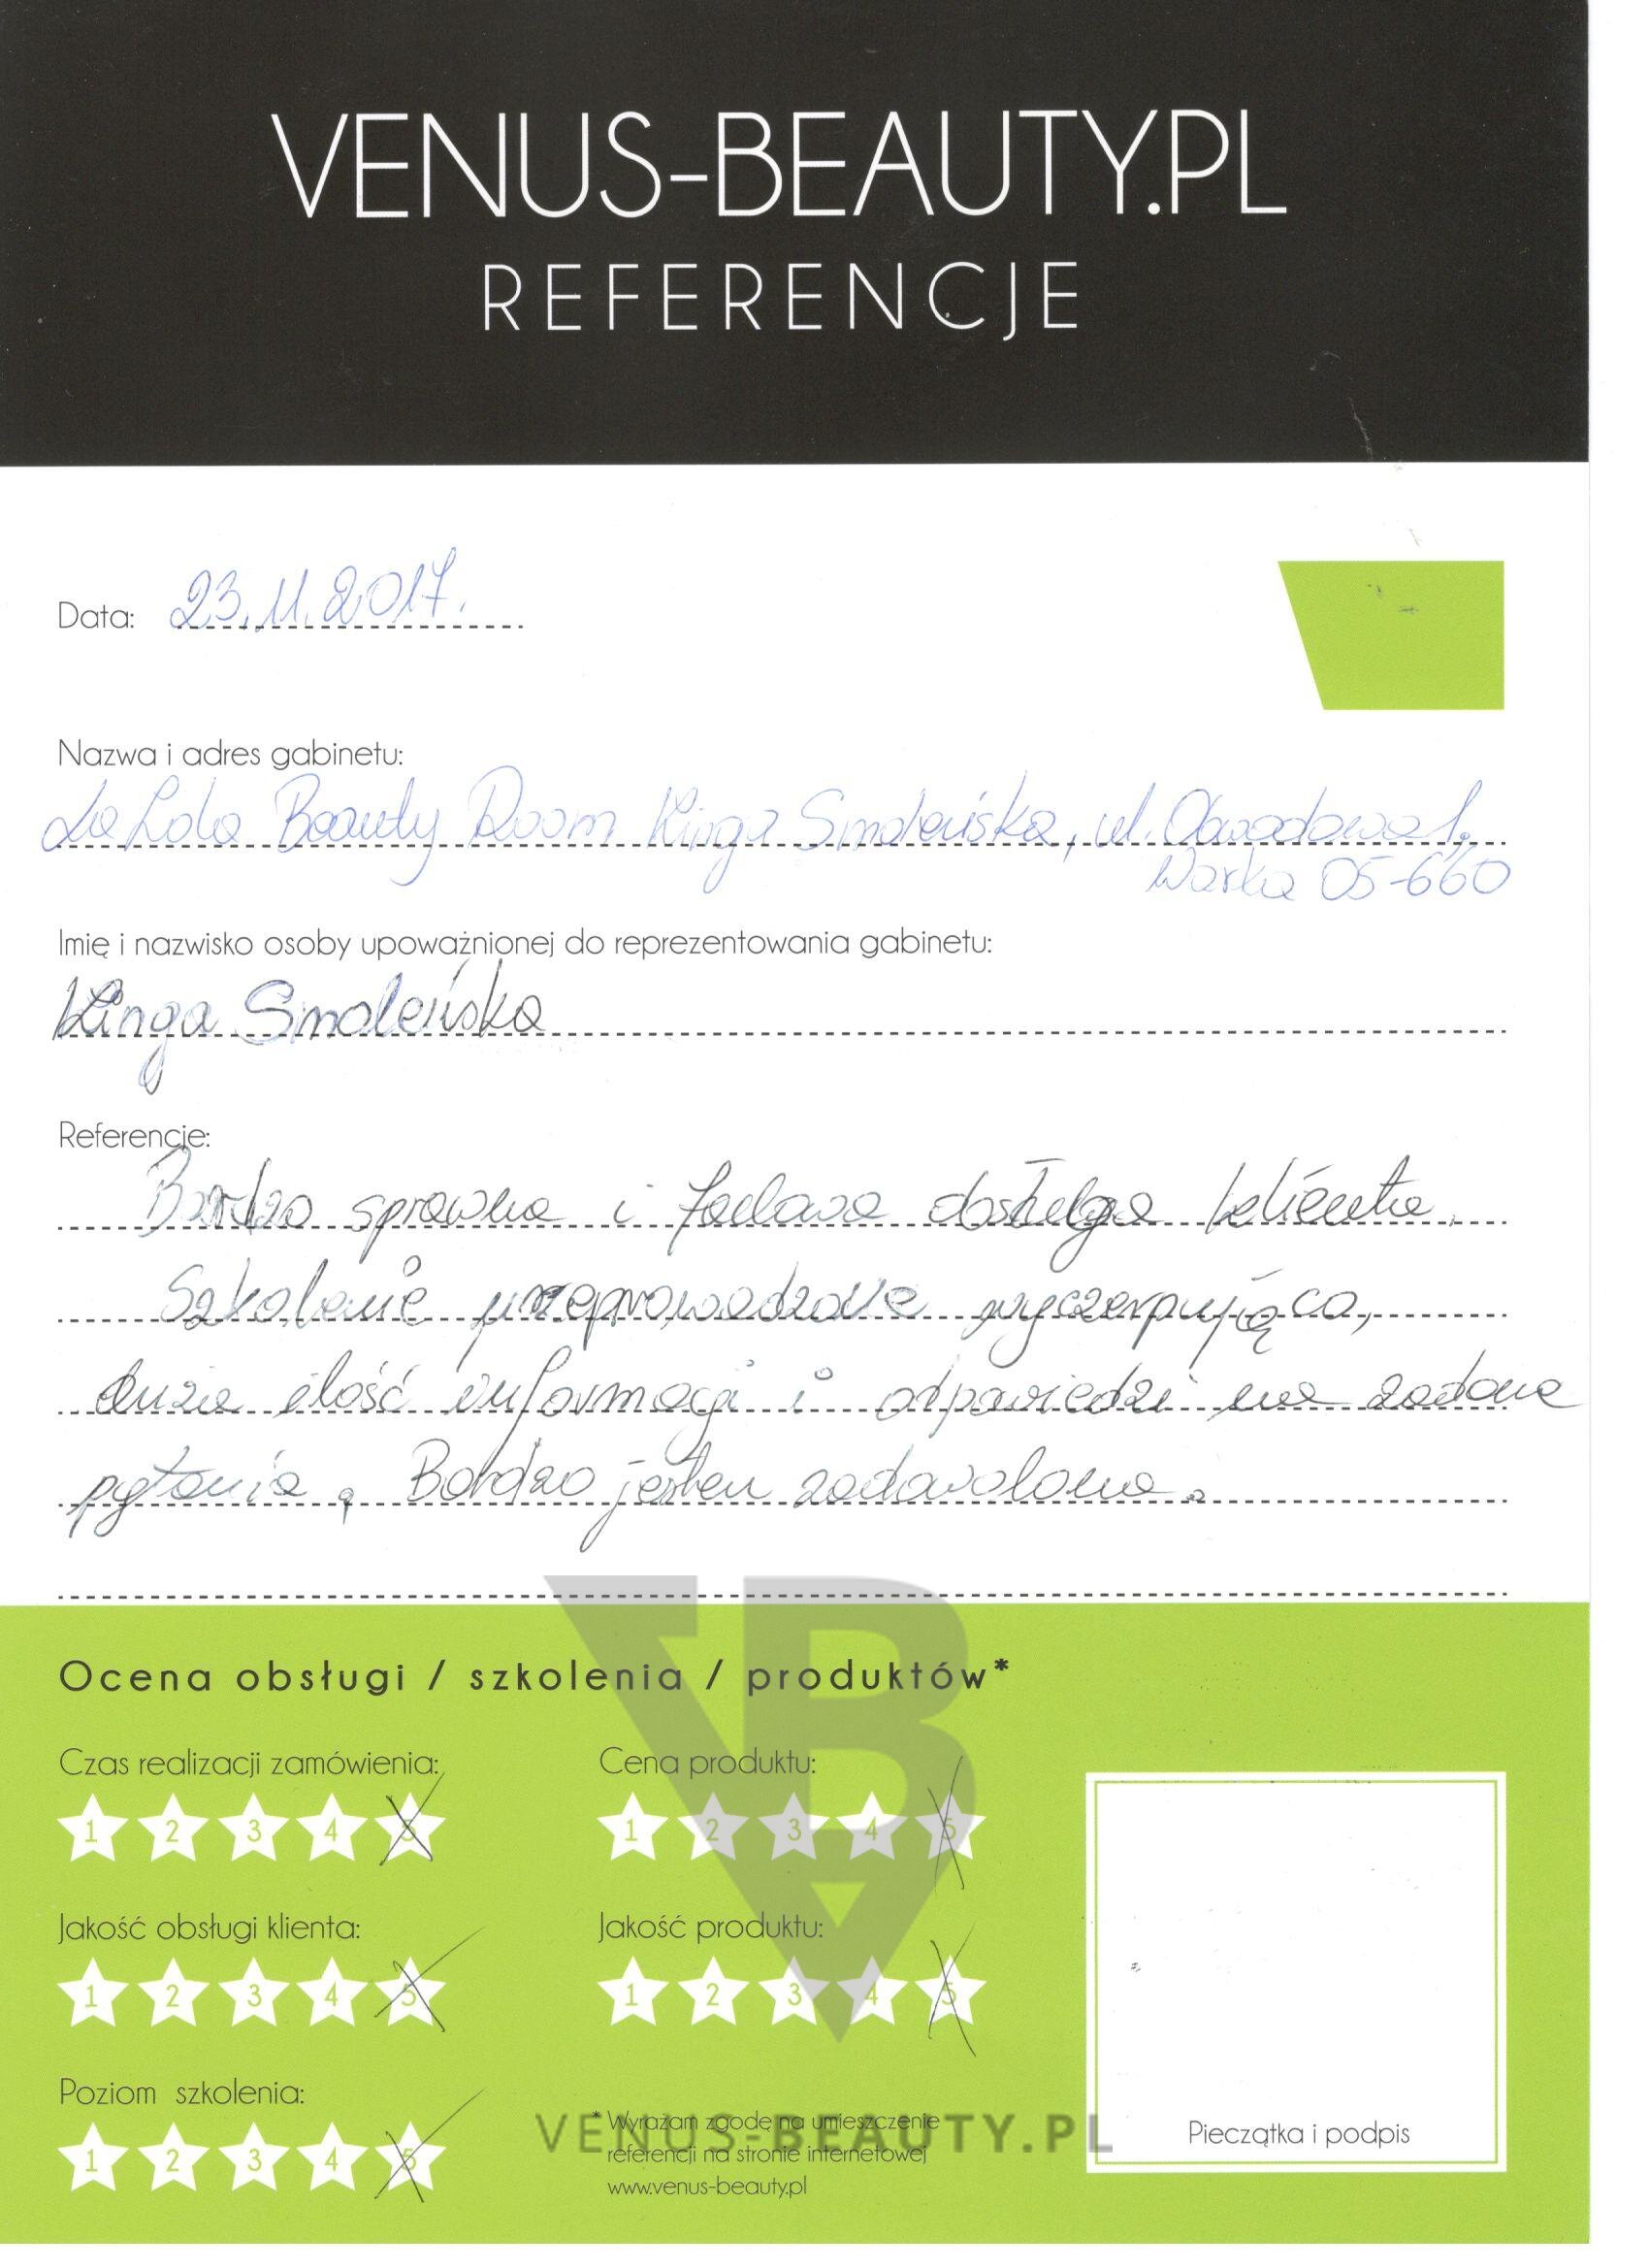 VENUS-BEAUTY.PL
REFERENCJE
Data: 23.11.2017.
Nazwa i adres gabinetu:
LaLola Beauty Room Kinga Smoleńska, ul. 1.
Warka 05-660
Imię i nazwisko osoby upoważnionej do reprezentowania gabinetu:
Kinga Smoleńska
Referencje:
Bardzo sprawna i klienta.
Szkolenie przeprowadzone wyczerpująco,
duża ilość informacji i odpowiedzi na zadane
pytania. Bardzo jestem zadowolona.
Ocena obsługi / szkolenia / produktów*
Czas realizacji zamówienia:
1 2 3 4 5
Cena produktu:
1 2 3 4 5
Jakość obsługi klienta:
1 2 3 4 5
Jakość produktu:
1 2 3 4 5
Poziom szkolenia:
1 2 3 4 5
* Wyrażam zgodę na umieszczenie
referencji na stronie internetowej
www.venus-beauty.pl
VENUS-BEAUTY.PL
Pieczątka i podpis